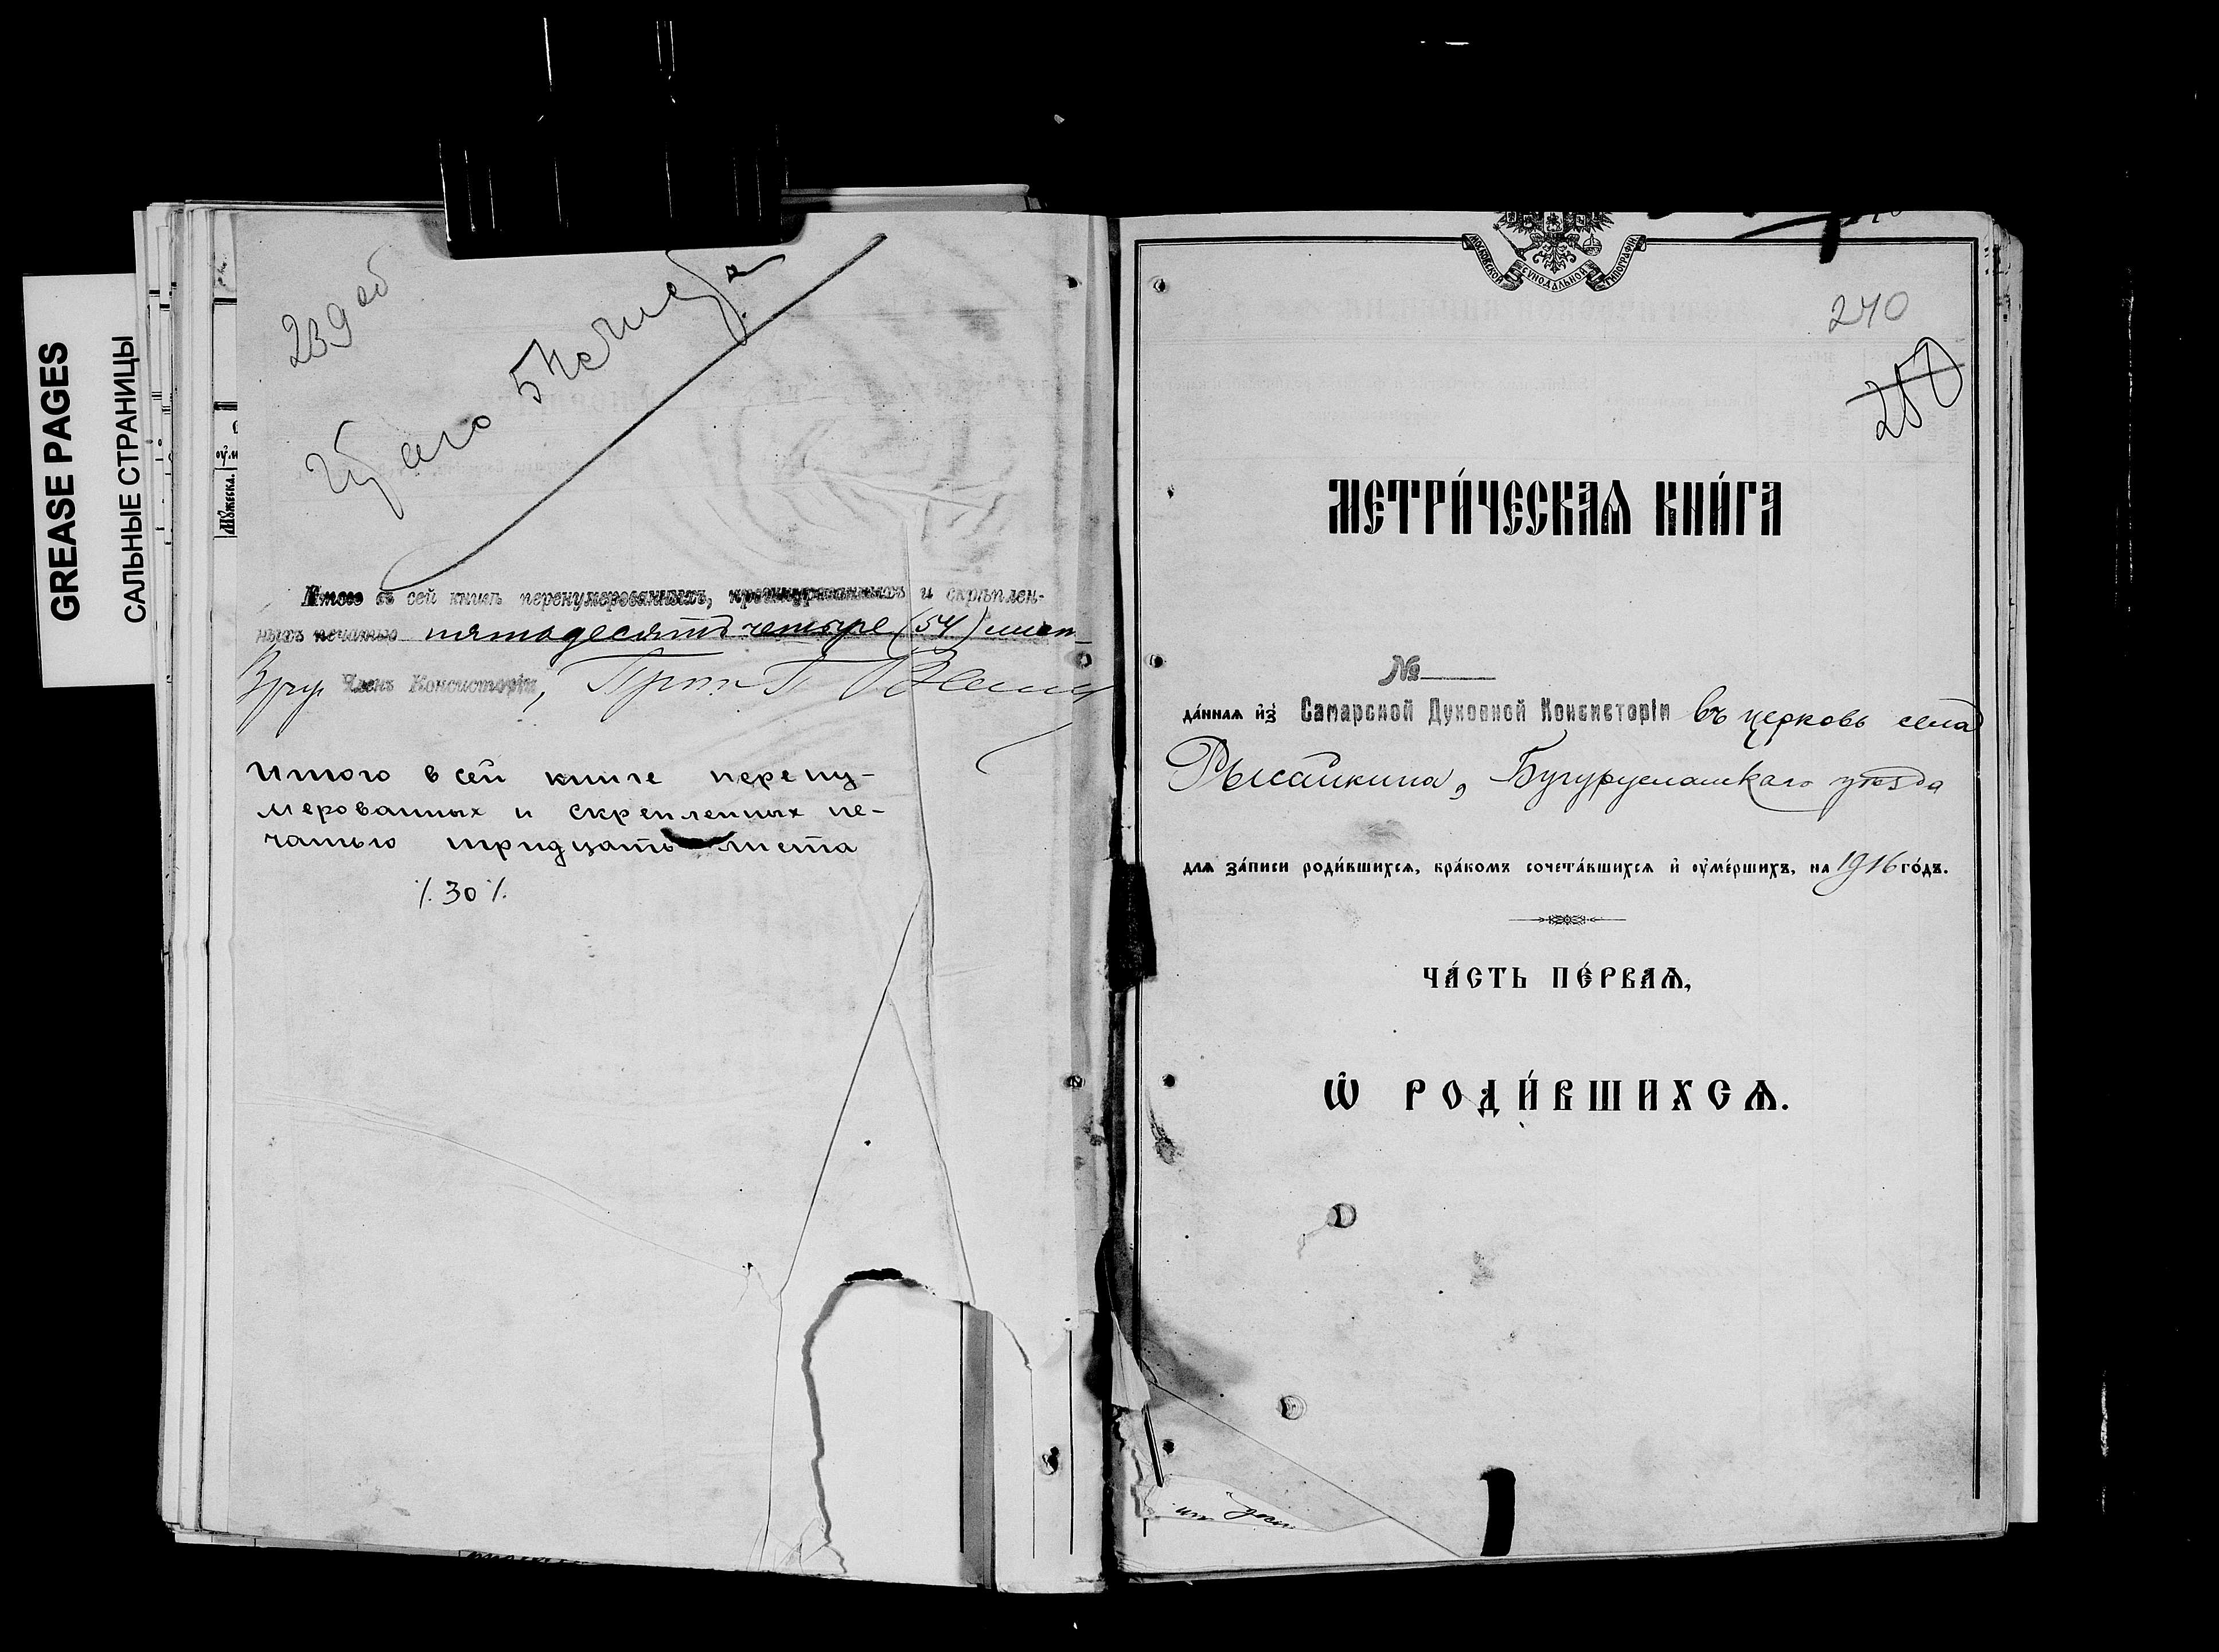 GREASE PAGES
САЛЬНЫЕ СТРАНИЦЫ
239 об
Итого въ сей книгѣ перенумерованныхъ, прошнурованныхъ и скрѣплен-
ныхъ печатью пятьдесятъ четыре (54) лист
Членъ Консисторіи, Прот. П.
Итого в сей книге перену-
мерованных и скрепленных пе-
чатью тридцать листа
/. 30 /.
Мꙋжеска.
МОСКОВСКОЙ СѴНОДАЛЬНОЙ ТИПОГРАФІИ
240
250
МЕТРИ́ЧЕСКАѦ КНИ́ГА
№
да́ннаѧ и҆з̾ Самарской Духовной Консисторіи въ церковь села
Рысайкина, Бугурусланскаго уѣзда
длѧ за́писи роди́вшихсѧ, бра́комъ сочета́вшихсѧ и҆ ᲂу҆ме́ршихъ, на 1916 го́дъ.
ЧА́СТЬ ПЕ́РВАѦ,
Ѡ҆ РОДИ́ВШИХСѦ.